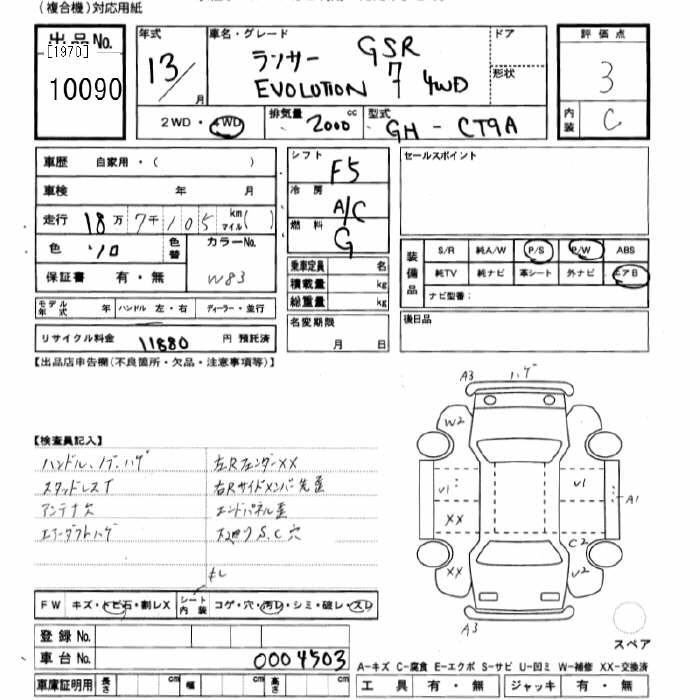 (複合機)対応用紙
出品No.
[1970]
10090
年式
13/
月
車名・グレード
ランサー GSR
EVOLUTION 7 4WD
ドア
形状
評価点
3
内装
C
2WD・4WD
排気量
2000
cc
型式
GH-CT9A
車歴 自家用・( )
車検 年 月
走行 18万 7千105 km マイル( )
色 シロ 色替
カラーNo.
W83
保証書 有・無
シフト
F5
冷房
A/C
燃料
G
乗車定員 名
積載量 kg
総重量 kg
セールスポイント
装備品
S/R 純A/W P/S P/W ABS
純TV 純ナビ 革シート 外ナビ エアB
ナビ型番:
モデル年式 年 ハンドル 左・右 ディーラー・並行
リサイクル料金 11880 円 預託済
名変期限
月 日
後日品
【出品店申告欄(不良箇所・欠品・注意事項等)】
A3 ハゲ
W2
V1
XX
XX
V1
A1
C2
V2
A3
スペア
【検査員記入】
ハンドル、ノブ、ハゲ
左Rフェンダー XX
スタッドレスT
右Rサイドメンバ先歪
アンテナ欠
エンドパネル歪
エアーダクトハゲ
S.C穴
FW キズ・トビ石・割レX
シート内装
コゲ・穴・汚レ・シミ・破レ・スレ
登録No.
車台No.
0004503
車庫証明用 長さ cm 幅 cm 高さ cm
A-キズ C-腐食 E-エクボ S-サビ U-凹ミ W-補修 XX-交換済
工具 有・無 ジャッキ 有・無